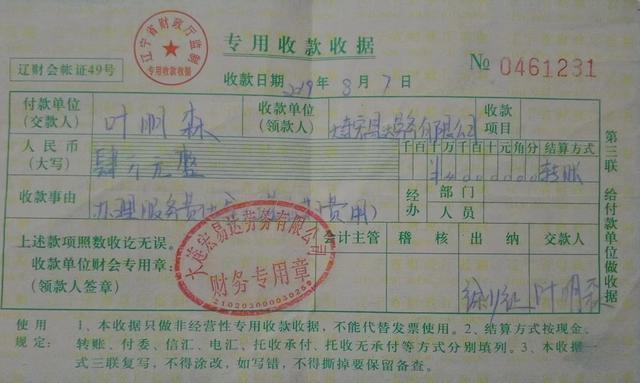 辽宁省财政厅监制
专用收款收据
专用收款收据
辽财会帐证49号
收款日期 2019年8月7日
№ 0461231
付款单位
(交款人)
收款单位
(领款人)
收款
项目
人民币
(大写)
肆万元整
千百十万千百十元角分
结算方式
转账
收款事由
办理服务费
费用)
经办
部门
人员
上述款项照数收讫无误。
收款单位财会专用章:
(领款人签章)
大连宏易达劳务有限公司
财务专用章
会计主管
稽核
出纳
交款人
第三联 给付款单位做收据
使用规定:
1、本收据只做非经营性专用收款收据,不能代替发票使用。2、结算方式按现金、
转账、付委、信汇、电汇、托收承付、托收无承付等方式分别填列。3、本收据一
式三联复写,不得涂改,如写错,不得撕掉要保留备查。